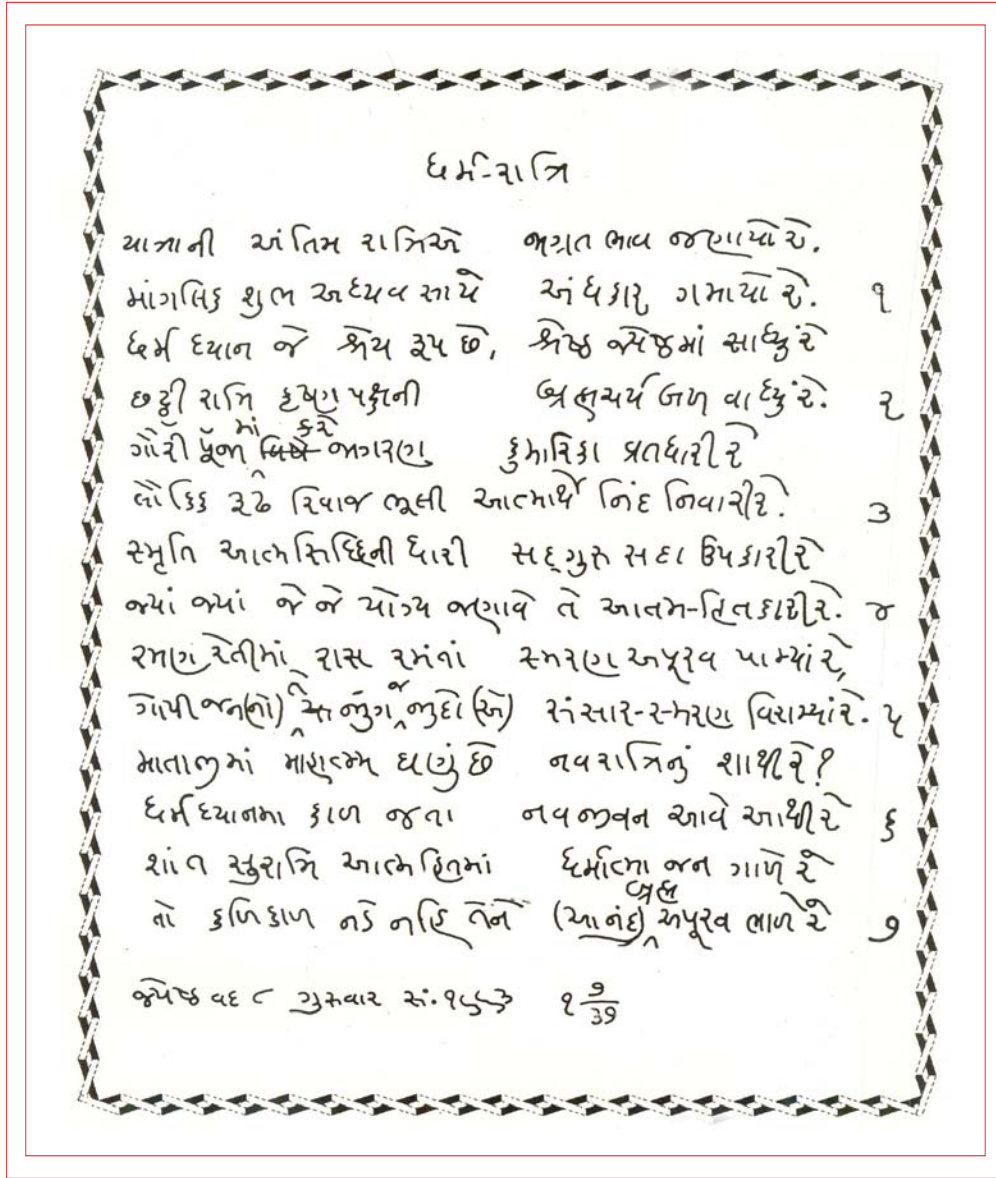 ધર્મ-રાત્રિ
યાત્રાની અંતિમ રાત્રિએ જાગ્રત ભાવ જણાયો રે.
માંગલિક શુભ અધ્યવસાયે અંધકાર ગમાયો રે. ૧
ધર્મ ધ્યાન જે શ્રેય રૂપ છે, શ્રેષ્ઠ જ્યેષ્ઠમાં સાધ્યું રે
છઠ્ઠી રાત્રિ કૃષ્ણ પક્ષની બ્રહ્મચર્ય બળ વાધ્યું રે. ૨
માં કરે
ગૌરી પૂજા વિષે જાગરણ કુમારિકા વ્રતધારી રે
લૌકિક રૂઢ રિવાજ ભૂલી આત્માર્થે નિંદ નિવારી રે. ૩
સ્મૃતિ આત્મસિદ્ધિની ધારી સદ્ગુરુ સદા ઉપકારી રે
જ્યાં જ્યાં જે જે યોગ્ય જણાવે તે આતમ-હિતકારી રે. ૪
રમણ રેતીમાં રાસ રમંતાં સ્મરણ અપૂરવ પામ્યાં રે,
ગોપીજન(નો) તે જ જુદો (એ) સંસાર-સ્મરણ વિરામ્યાં રે. ૫
માતાજીમાં માહાત્મ્ય ઘણું છે નવરાત્રિનું શાથી રે?
ધર્મધ્યાનમા કાળ જતા નવજીવન આવે આથી રે ૬
શાંત સુરાત્રિ આત્મહિતમાં ધર્માત્મા જન ગાળે રે
બ્રહ્મ
તો કળિકાળ નડે નહિ તેને (આનંદ) અપૂરવ ભાળે રે ૭
જ્યેષ્ઠ વદ ૮ ગુરુવાર સં. ૧૯૯૩ ૧ ૭/૩૭